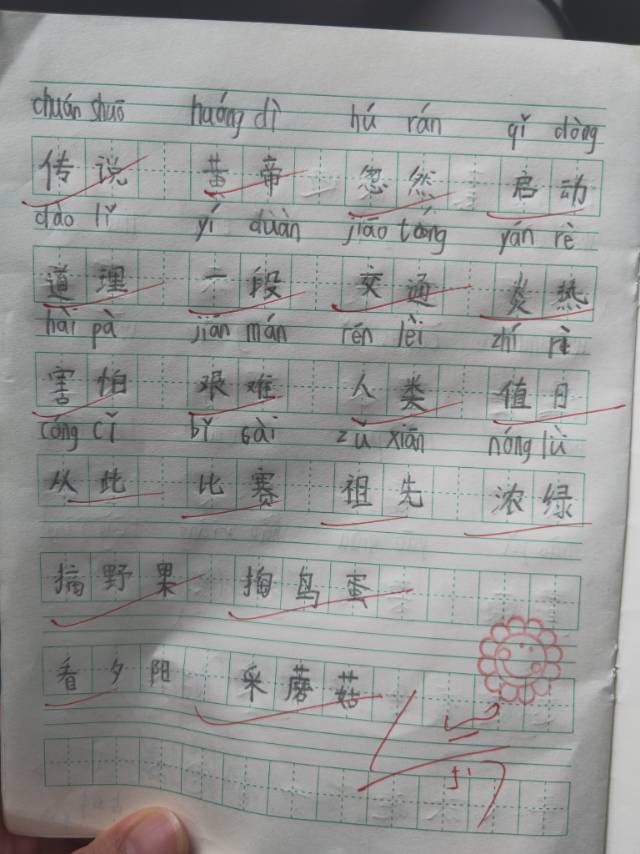 chuán shuō huáng dì hú rán qǐ dòng
传说 黄帝 忽然 启动
dào lǐ yí duàn jiāo tōng yán rè
道理 一段 交通 炎热
hài pà jiān mán rén lèi zhí rì
害怕 艰难 人类 值日
cóng cǐ bǐ sài zǔ xiān nóng lǜ
从此 比赛 祖先 浓绿
摘野果 掏鸟蛋
看夕阳 采蘑菇